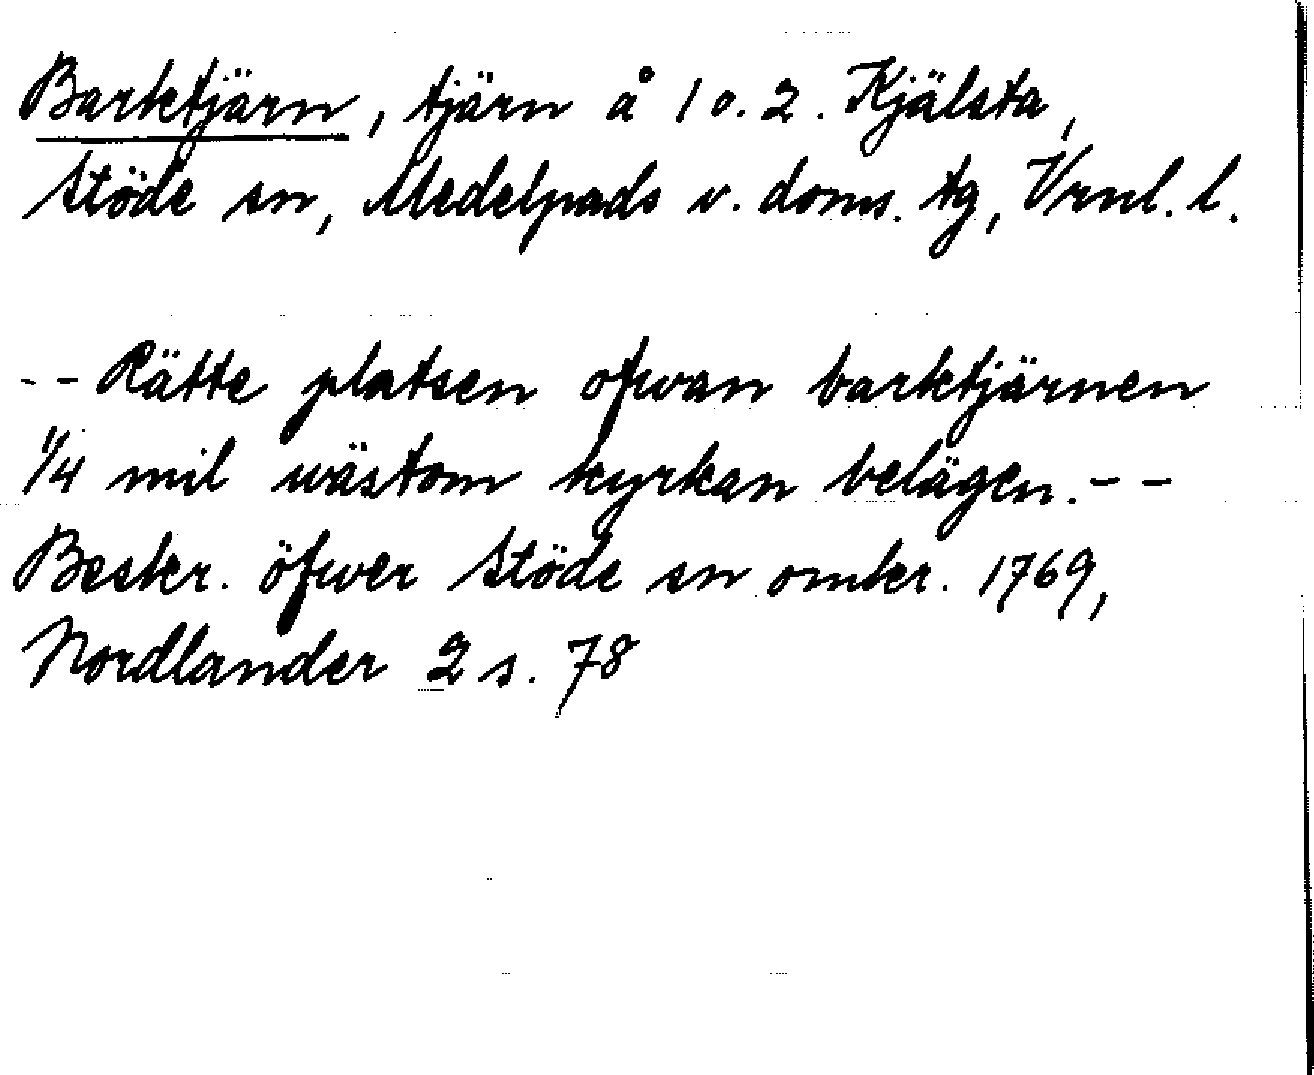 Barktjärn, tjärn å 1 o. 2. Kjälsta,
Stöde sn, Medelpads v. doms. tg, Vrnl. l.
-- Rätte platsen ofwan barktjärnen
1/4 mil wästom kyrkan belägen. --
Beskr. öfwer Stöde sn omkr. 1769,
Nordlander 2 s. 78